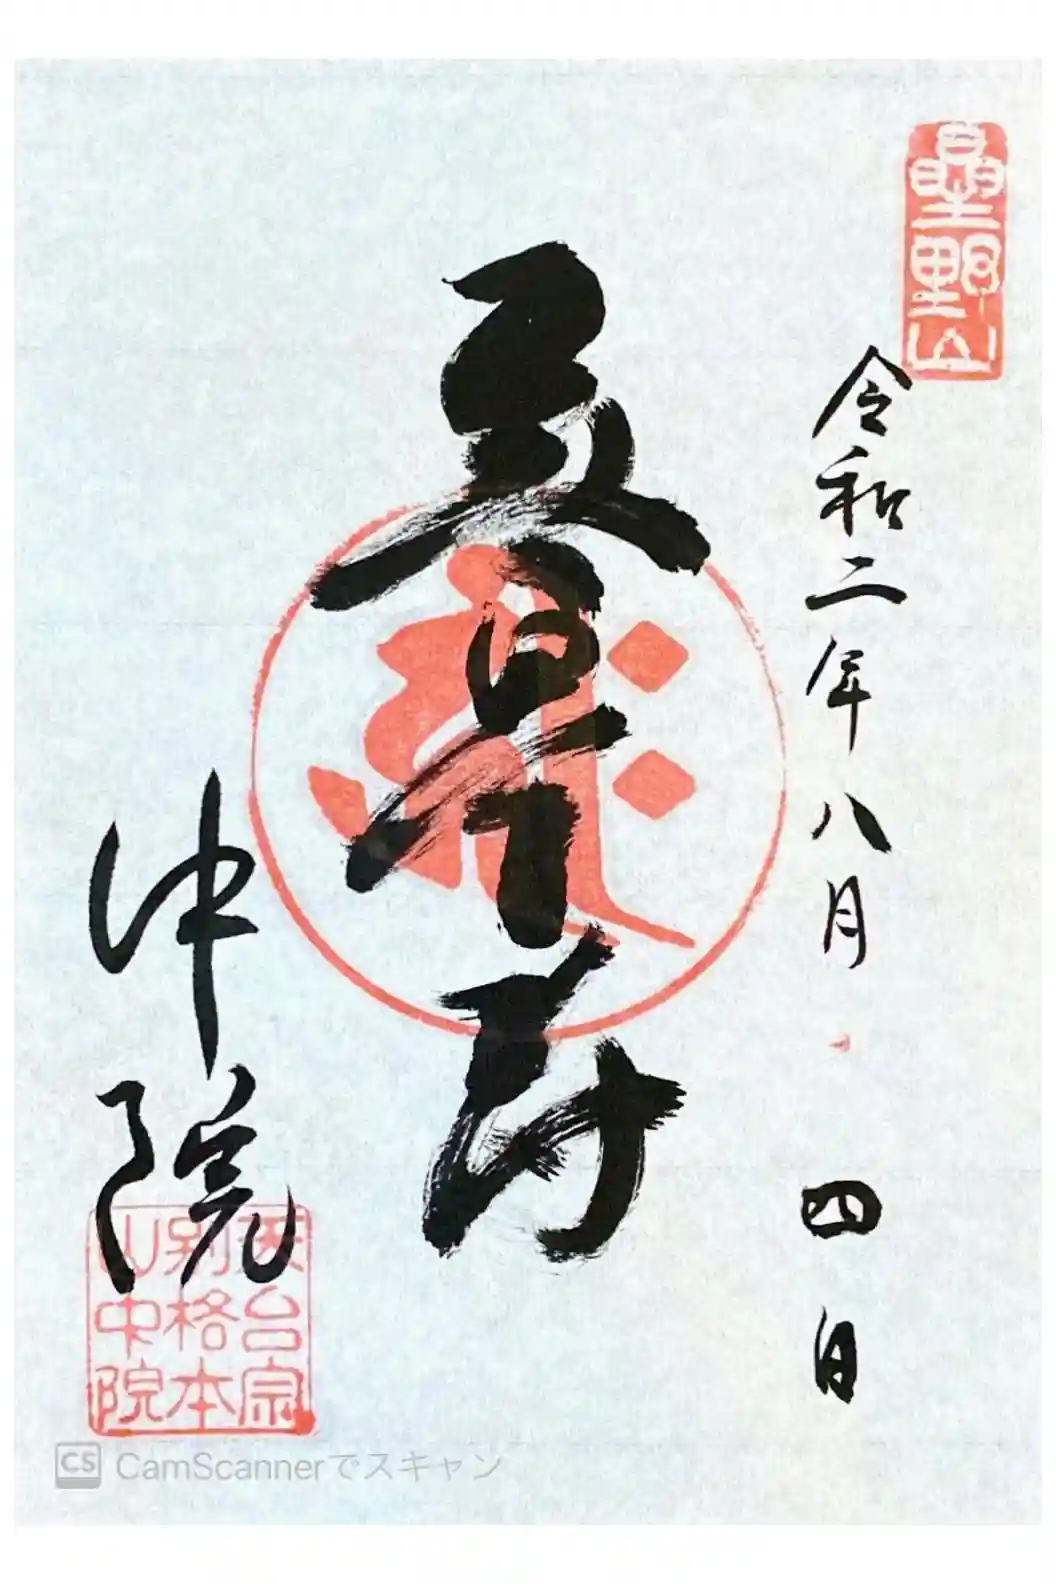 曐野山
令和二年八月四日
無量寿
中院
天台宗
別格本
山中院
CS CamScannerでスキャン